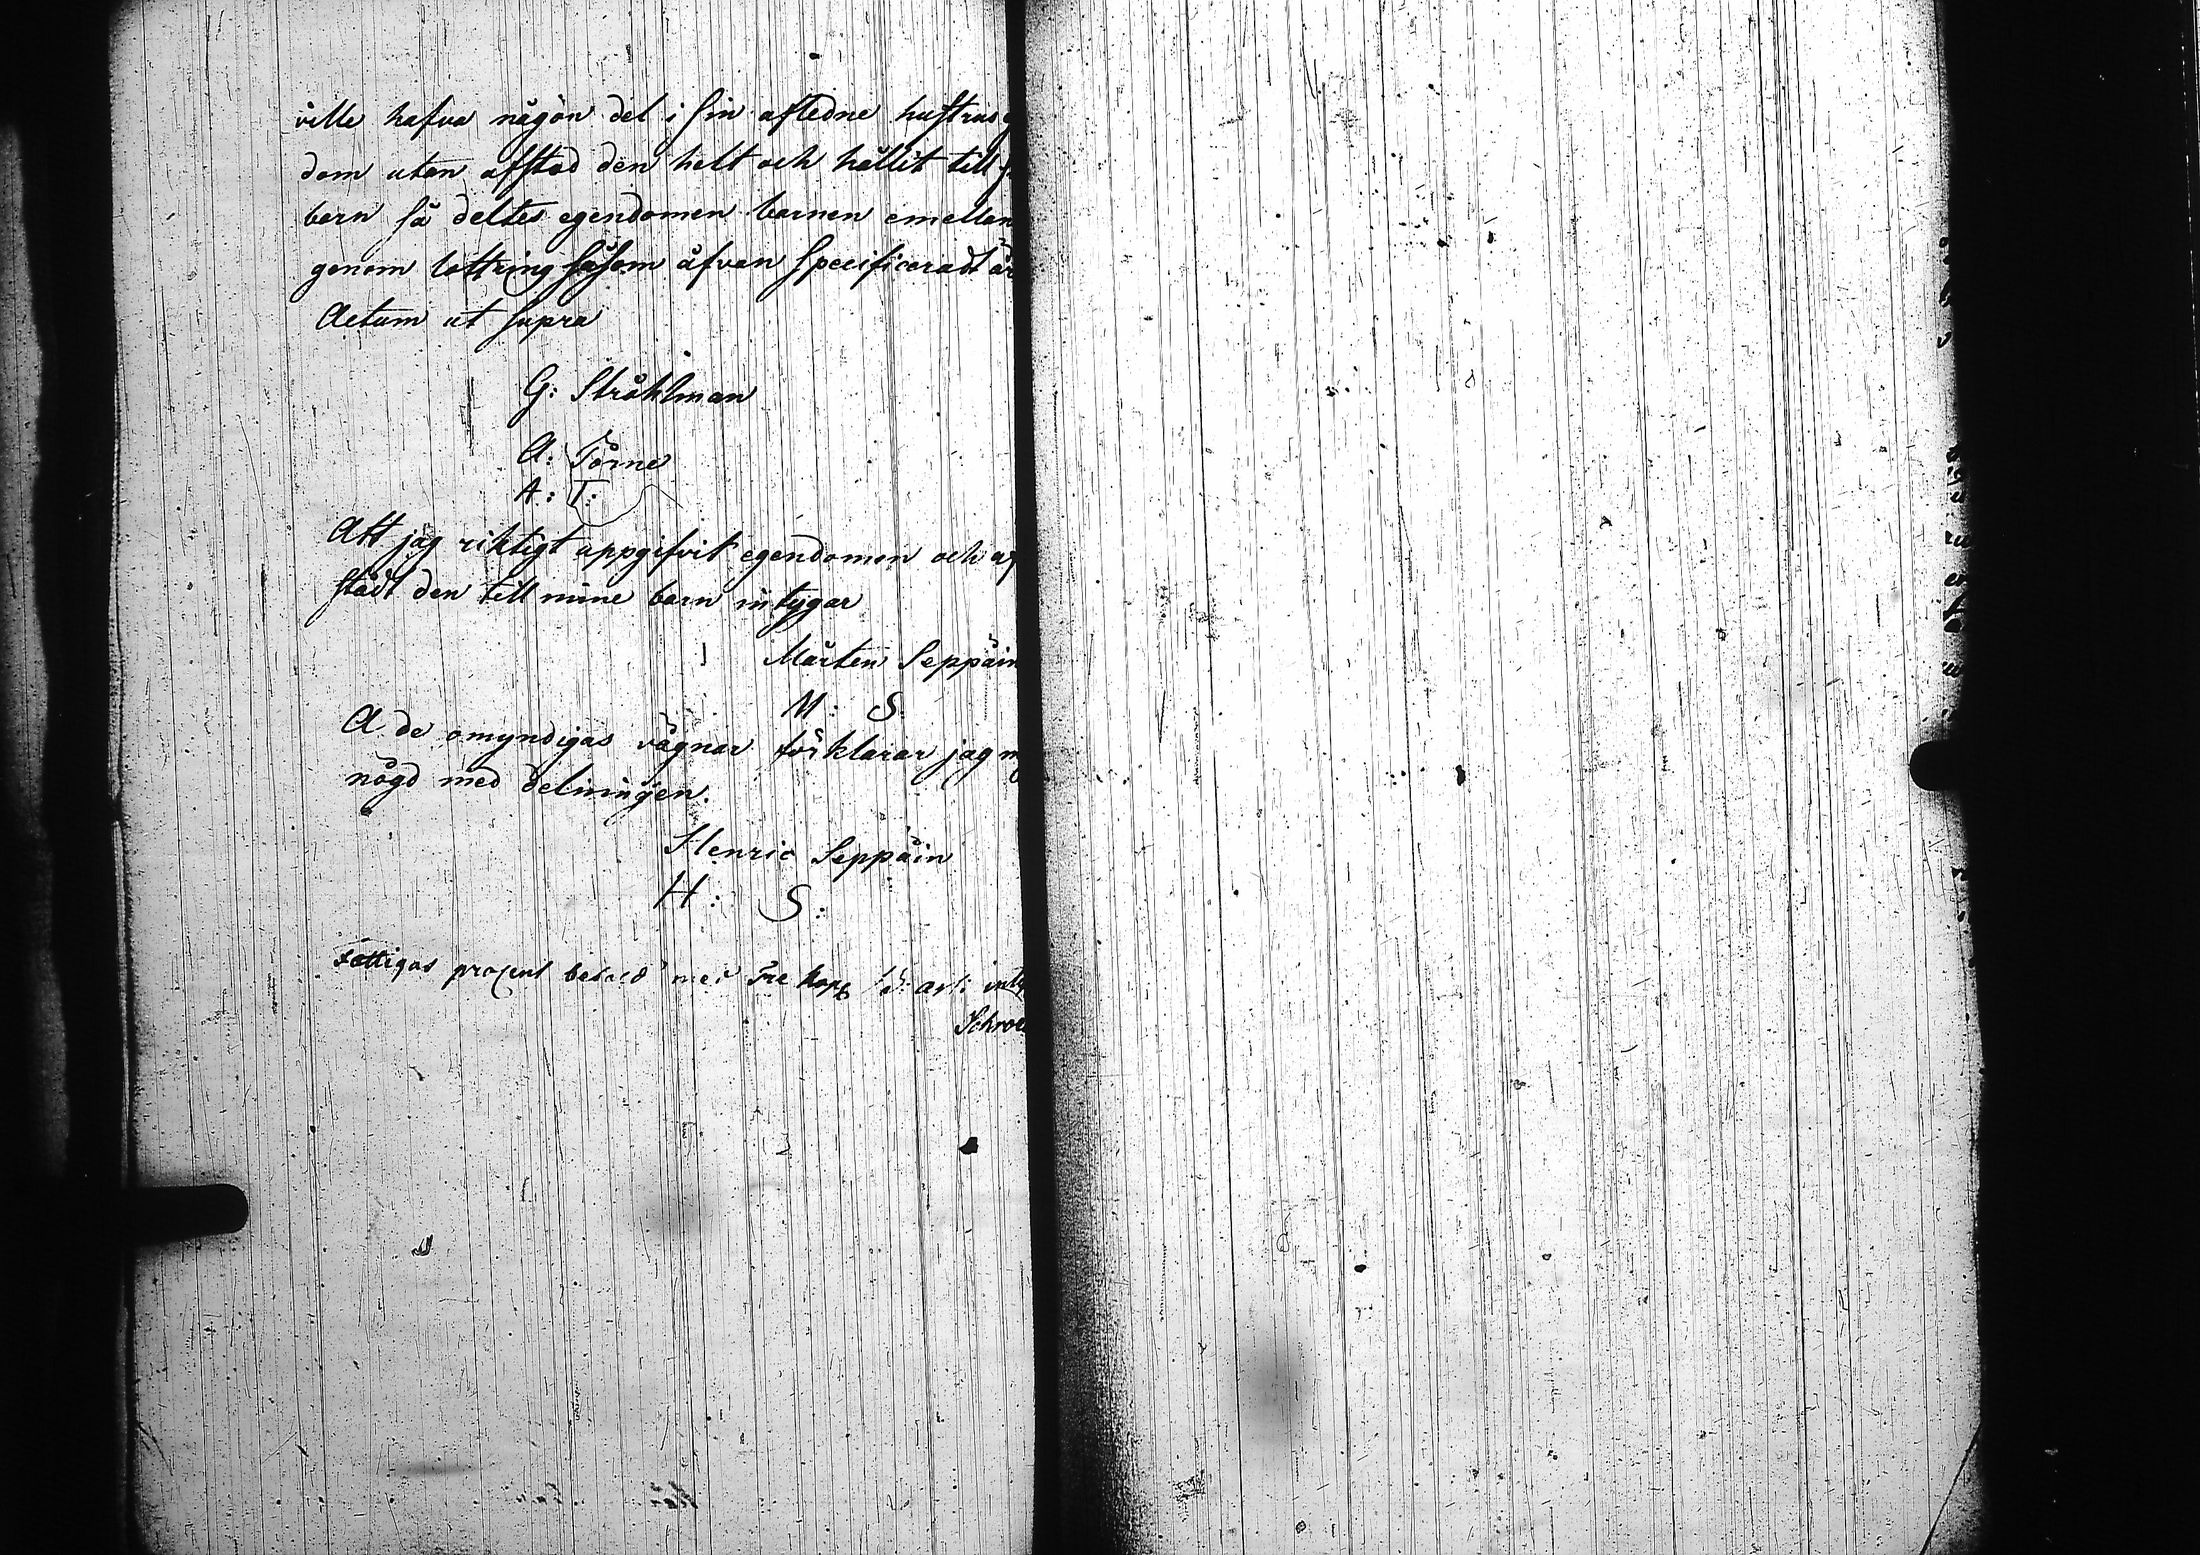 ville hafva någon del i sin afledne hustrus
dom utan afstod den helt och hållit till
barn så deltes egendomen barnen emellan
genom lottning såsom åfvan specificeradt är
Actum ut supra
G: Ståhlman
A: Törne
A: T:
Att jag riktigt uppgifvit egendomen och af
stådt den till mine barn intygar
Mårten Seppäin
M: S.
Å de omyndigas vägnar förklarar jag m
nögd med delningen.
Henric Seppäin
H: S:
Fattigas procent betald med Tre kop